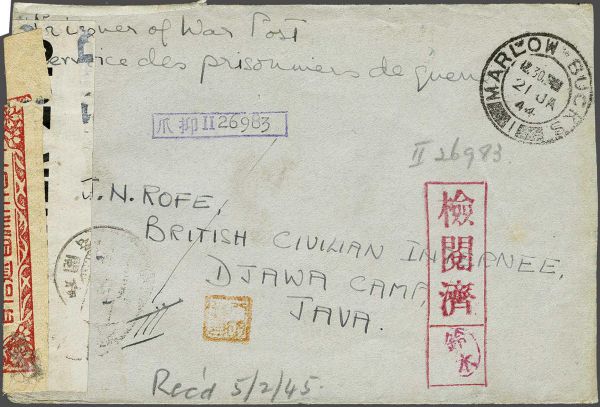 Prisoner of War Post
Service des prisonniers de guerre
MARLOW·BUCKS
12.30 PM
21 JA
44
爪抑II26983
II 26983.
J.N. ROFE,
BRITISH CIVILIAN INTERNEE,
DJAWA CAMP,
JAVA.
檢閱濟
鈴木
Rec'd 5/2/45.